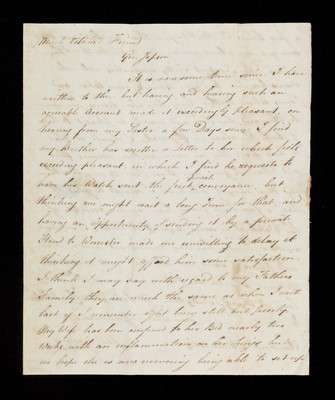 Much Esteem'd Friend
Geo: Jepson
It is now some time since I have
written to thee but having and having such an
agreeable Account made it exceedingly pleasant, on
hearing from my Sister a few Days since I find
my Brother has written a letter to her which feels
exceeding pleasant, in which I find he requests to
have his Watch sent the first conveyance, but
thinking one might wait a long Time for that, and
having an Opportunity of sending it by a private
Hand to Worcester made me unwilling to delay it
thinking it might afford him some satisfaction
I think I may say with regard to my Fathers
Family they are much the same as when I wrote
last if I remember right being still but poorly
My Wife has been confined to her Bed nearly two
Weeks with an inflammation on her lungs but
we hope she is now recovering being able to set up